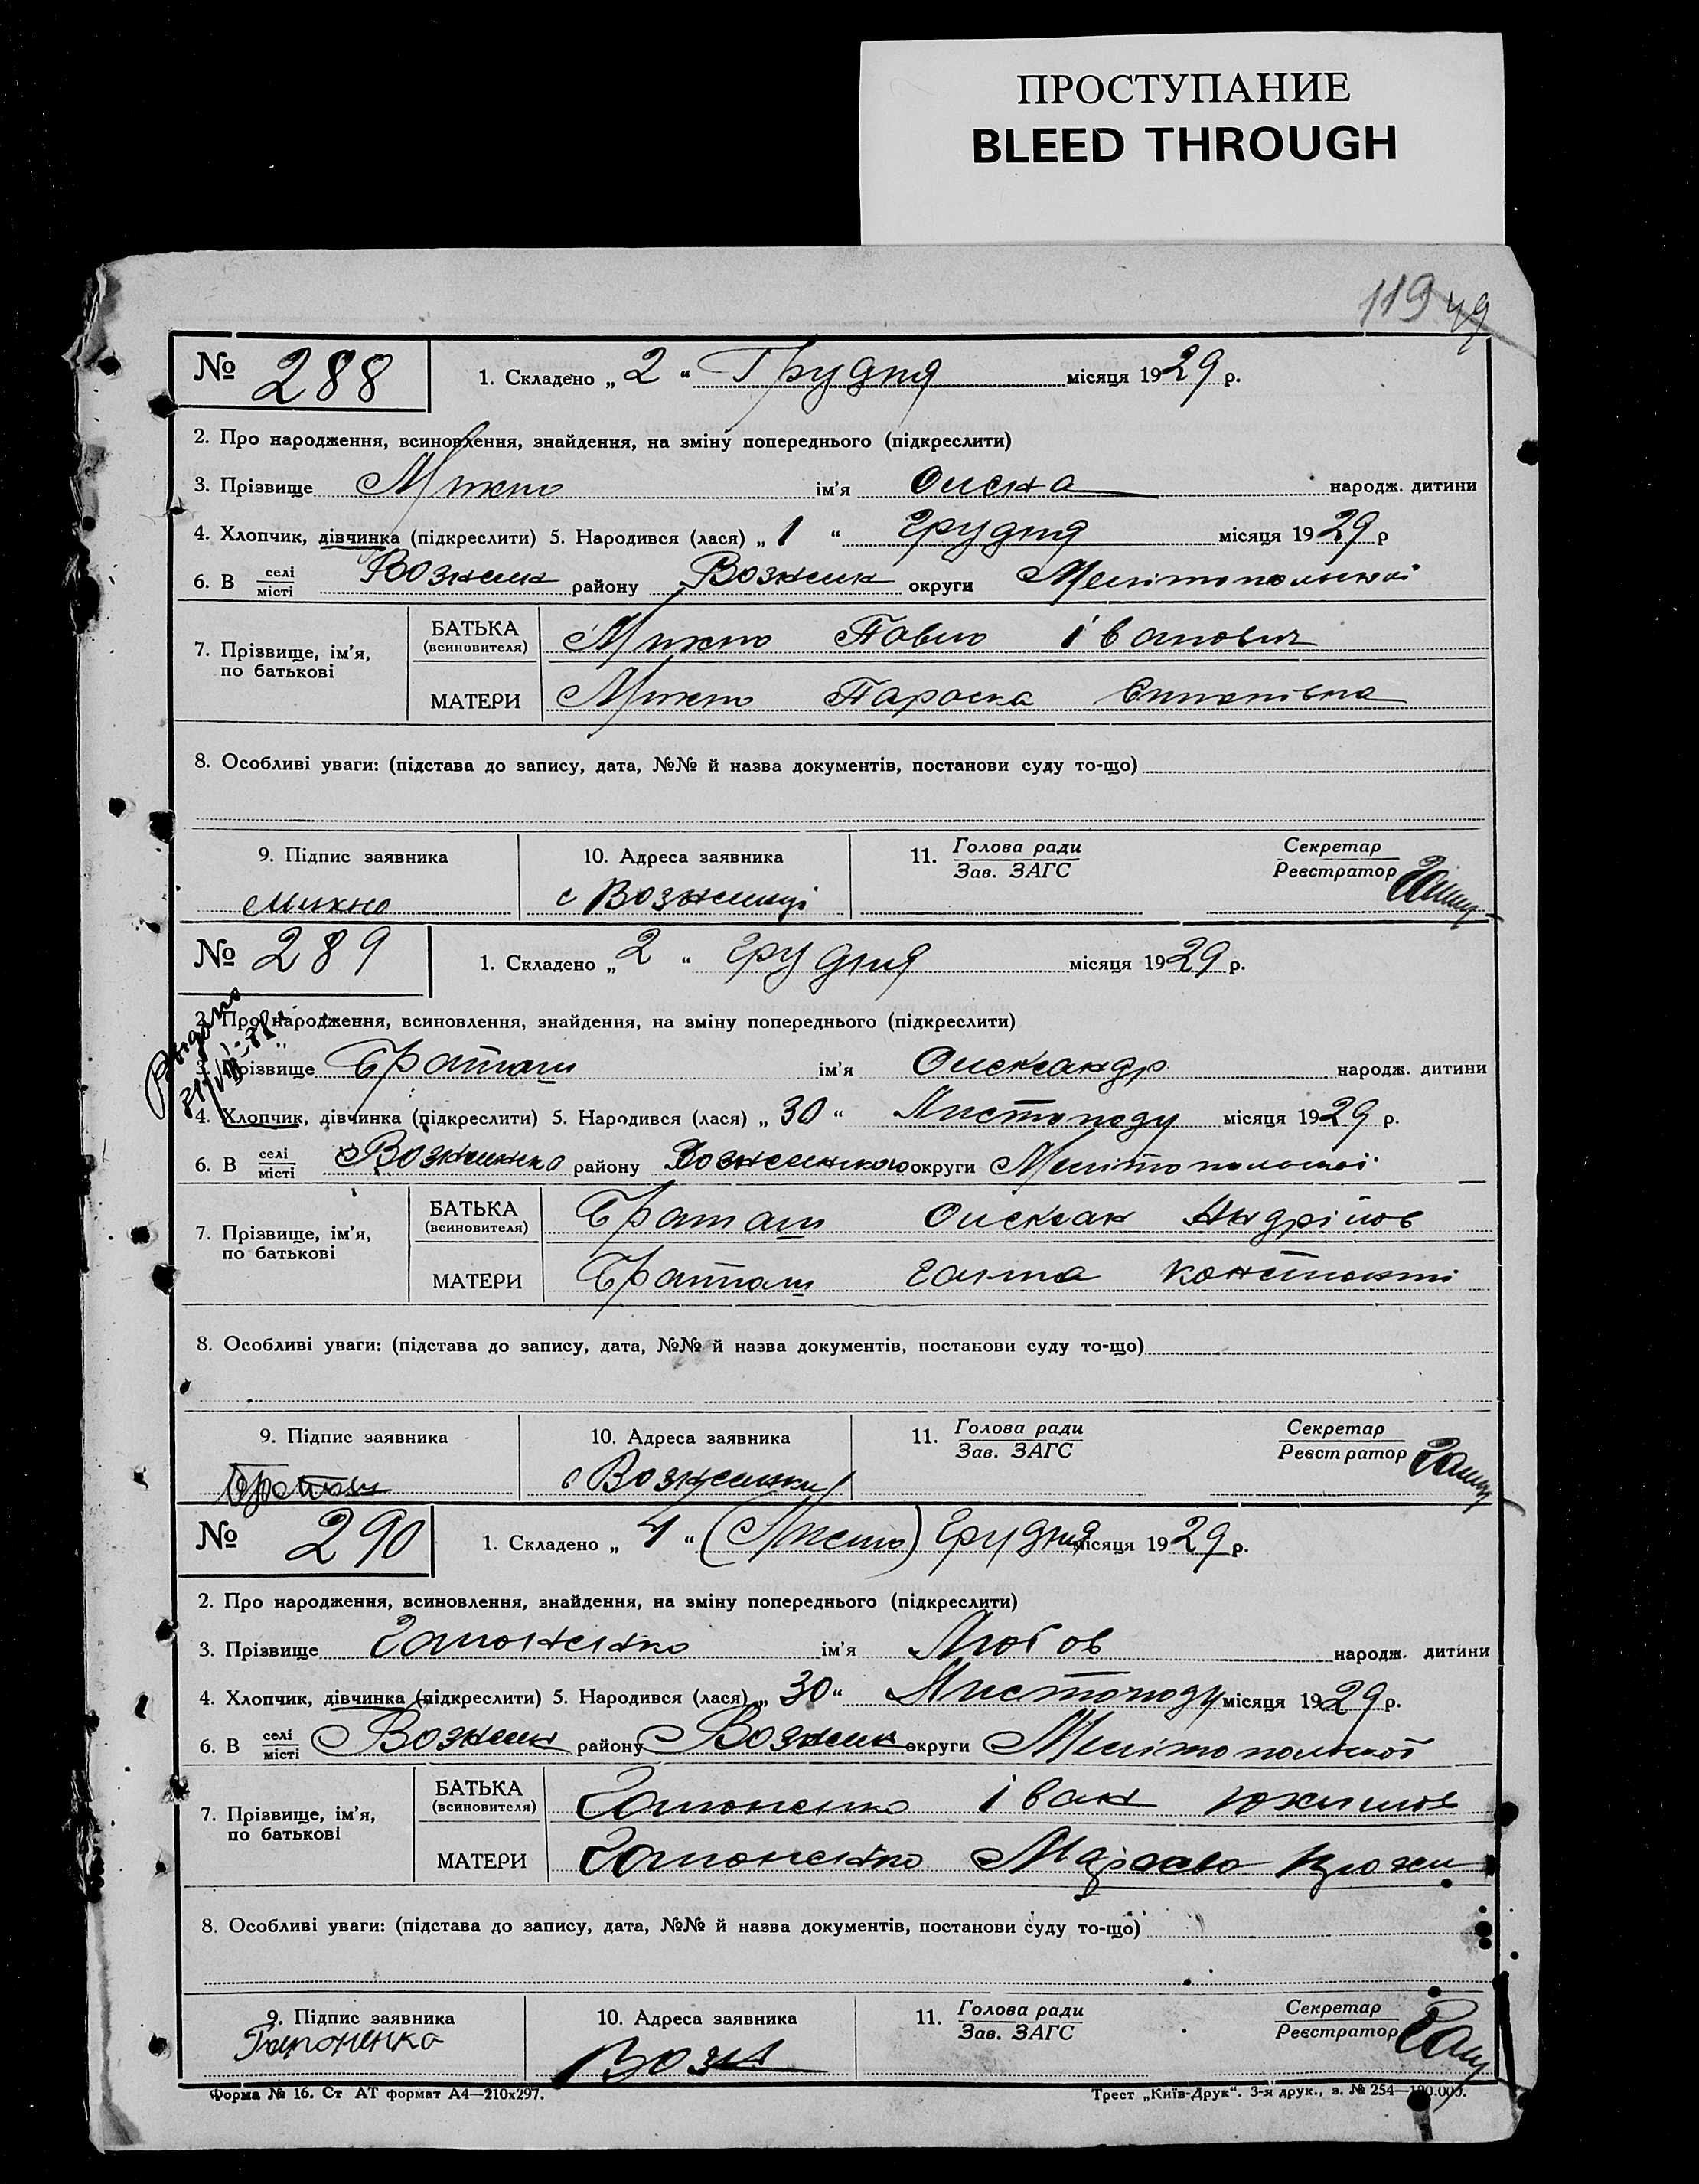 ПРОСТУПАНИЕ
BLEED THROUGH
119 49
№ 288 1. Складено „ 2 “ Грудня місяця 1929 р.
2. Про народження, всиновлення, знайдення, на зміну попереднього (підкреслити)
3. Прізвище ім'я народж. дитини
4. Хлопчик, дівчинка (підкреслити) 5. Народився (лася) „ 1 “ Грудня місяця 1929 р
6. В селі/місті Вознесен району Вознесен округи Мелітопольської
7. Прізвище, ім'я, по батькові
БАТЬКА (всиновителя) Павло Іванович
МАТЕРИ Параска
8. Особливі уваги: (підстава до запису, дата, №№ й назва документів, постанови суду то-що)
9. Підпис заявника 10. Адреса заявника 11. Голова ради/Зав. ЗАГС Секретар/Реєстратор
Михно с
№ 289 1. Складено „ 2 “ Грудня місяця 1929 р.
2. Про народження, всиновлення, знайдення, на зміну попереднього (підкреслити)
Выдано
3. Прізвище Браташ ім'я Олександр народж. дитини
4. Хлопчик, дівчинка (підкреслити) 5. Народився (лася) „ 30 “ Листопаду місяця 1929 р.
6. В селі/місті району округи Мелітопольської
7. Прізвище, ім'я, по батькові
БАТЬКА (всиновителя) Браташ Олексан Андрійов
МАТЕРИ Браташ Галина Константі
8. Особливі уваги: (підстава до запису, дата, №№ й назва документів, постанови суду то-що)
9. Підпис заявника 10. Адреса заявника 11. Голова ради/Зав. ЗАГС Секретар/Реєстратор
Браташ с
№ 290 1. Складено „ 4 “ (Листо) Грудня місяця 1929 р.
2. Про народження, всиновлення, знайдення, на зміну попереднього (підкреслити)
3. Прізвище Гапоненко ім'я Любов народж. дитини
4. Хлопчик, дівчинка (підкреслити) 5. Народився (лася) „ 30 “ Листопаду місяця 1929 р.
6. В селі/місті району округи Мелітопольської
7. Прізвище, ім'я, по батькові
БАТЬКА (всиновителя) Гапоненко Іван
МАТЕРИ Гапоненко
8. Особливі уваги: (підстава до запису, дата, №№ й назва документів, постанови суду то-що)
9. Підпис заявника 10. Адреса заявника 11. Голова ради/Зав. ЗАГС Секретар/Реєстратор
Гапоненко Возн
Форма № 16. Ст АТ формат А4—210х297. Трест „Київ-Друк“. 3-я друк., з. № 254—